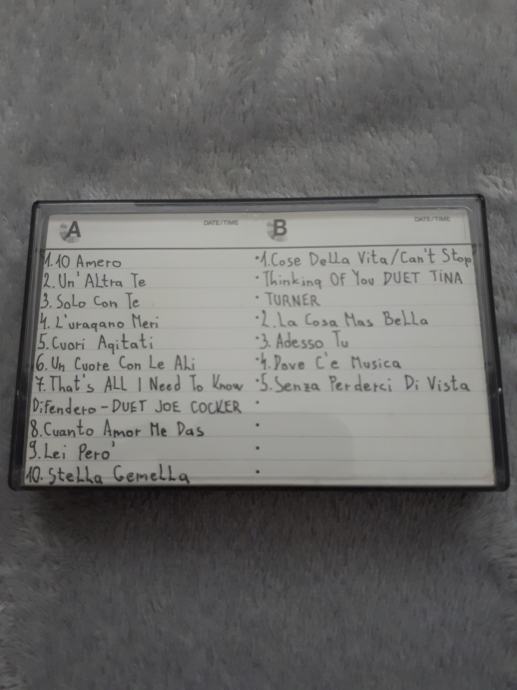 A
DATE/TIME
1.10 Amero
2.Un' Altra Te
3.Solo Con Te
4.L'uragano Meri
5.Cuori Agitati
6.Un Cuore Con Le Ali
7.That's ALL I Need To Know
Difendero-DUET JOE COCKER
8.Cuanto Amor Me Das
9.Lei Pero'
10.Stella Gemella
B
DATE/TIME
1.Cose Della Vita/Can't Stop
Thinking Of You DUET TINA
TURNER
2.La Cosa Mas Bella
3.Adesso Tu
4.Dove C'e Musica
5.Senza Perderci Di Vista